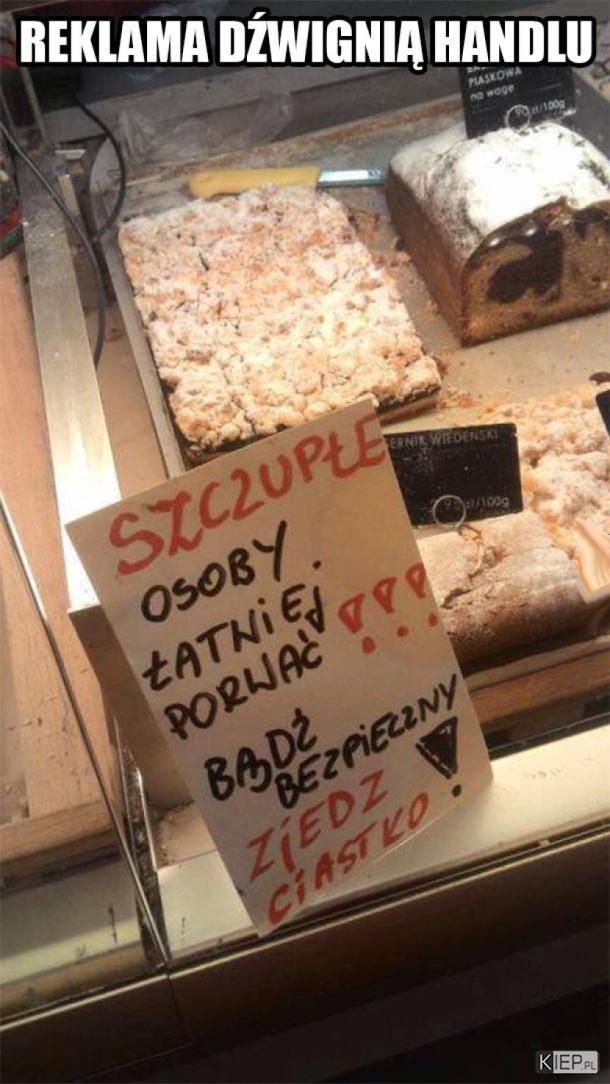 REKLAMA DŹWIGNIĄ HANDLU
PIASKOWA
na wagę
zł/100g
ERNIK WIEDEŃSKI
zł/100g
SZCZUPŁE
OSOBY
ŁATNIEJ
PORWAĆ !!!
BĄDŹ
BEZPIECZNY !
ZJEDZ
CIASTKO
KIEP.PL